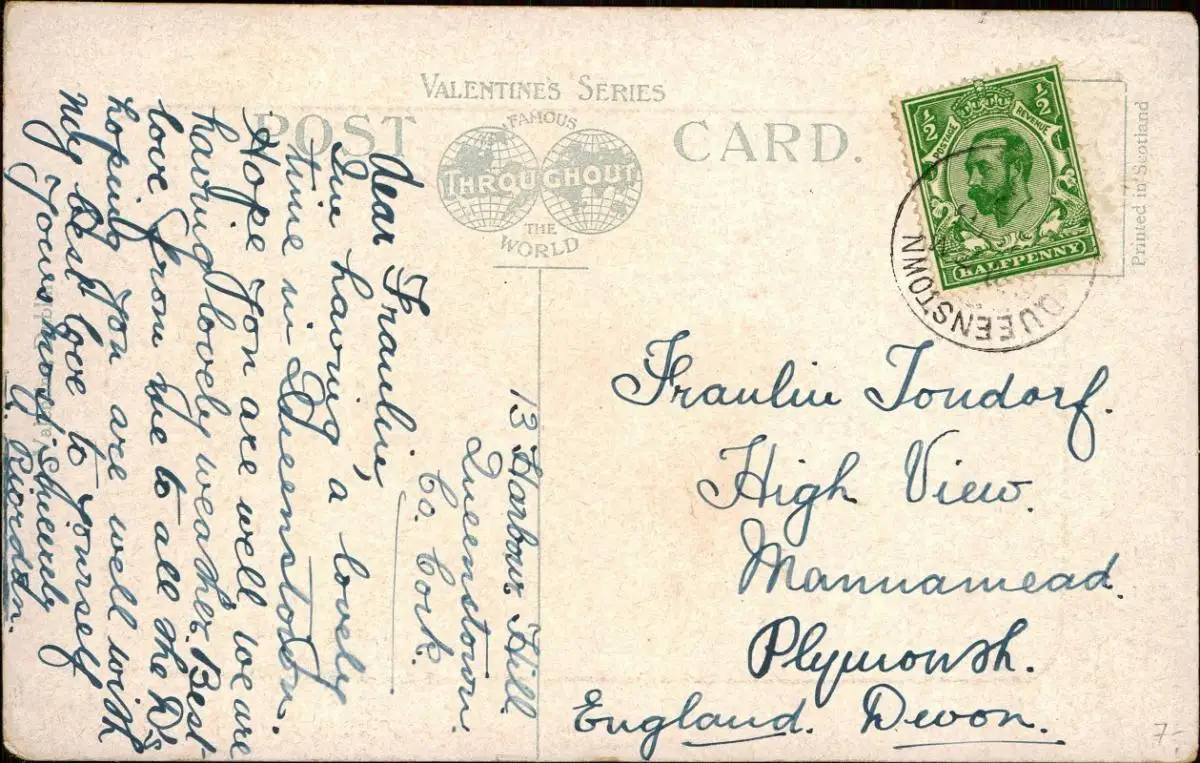 VALENTINE'S SERIES
POST CARD.
FAMOUS
THROUGHOUT
THE
WORLD
Printed in Scotland
½ ½
POSTAGE REVENUE
HALFPENNY
QUEENSTOWN
13 Harbour Hill
Queenstown.
Co. Cork.
Dear Fraulin,
Im having a lovely
time in Queenstown.
Hope You are well we are
having lovely weather. Best
love from me to all the D's
hoping You are well with
my best love to Yourself
Yours most sincerely
Riordan.
Fraulin Tondorf.
High View.
Mannamead.
Plymowth.
England. Devon.
7-